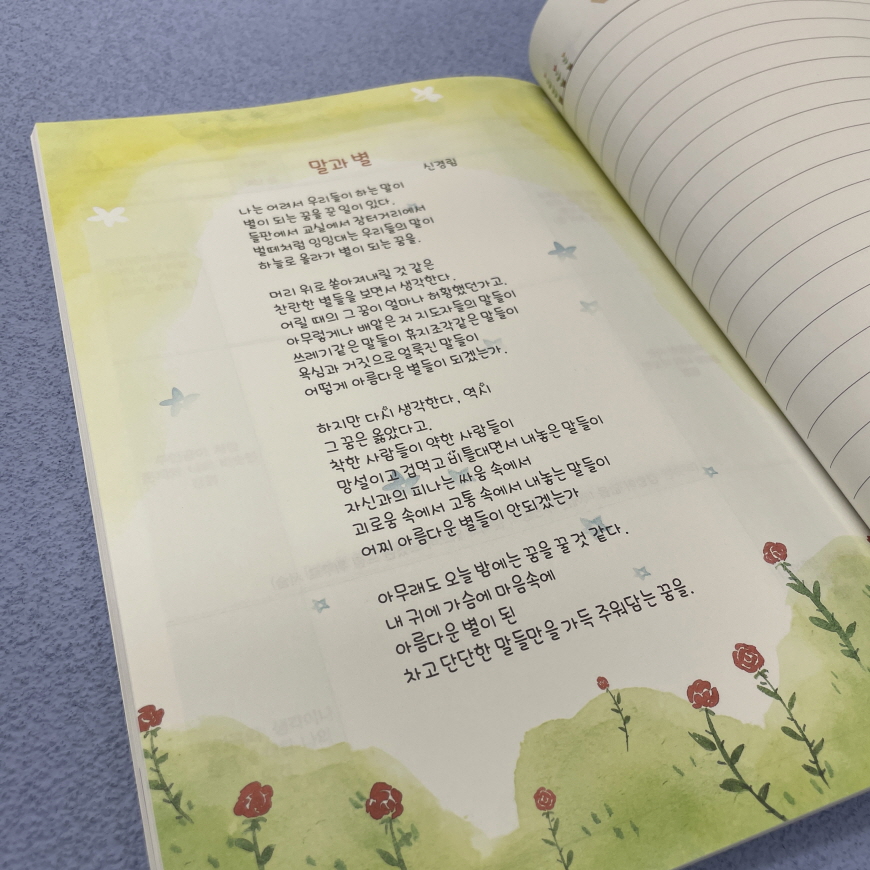 말과 별
신경림
나는 어려서 우리들이 하는 말이
별이 되는 꿈을 꾼 일이 있다.
들판에서 교실에서 장터거리에서
벌떼처럼 잉잉대는 우리들의 말이
하늘로 올라가 별이 되는 꿈을.
머리 위로 쏟아져내릴 것 같은
찬란한 별들을 보면서 생각한다.
어릴 때의 그 꿈이 얼마나 허황했던가고.
아무렇게나 배앝은 저 지도자들의 말들이
쓰레기같은 말들이 휴지조각같은 말들이
욕심과 거짓으로 얼룩진 말들이
어떻게 아름다운 별들이 되겠는가.
하지만 다시 생각한다, 역시
그 꿈은 옳았다고.
착한 사람들이 약한 사람들이
망설이고 겁먹고 비틀대면서 내놓은 말들이
자신과의 피나는 싸움 속에서
괴로움 속에서 고통 속에서 내놓는 말들이
어찌 아름다운 별들이 안되겠는가
아무래도 오늘 밤에는 꿈을 꿀 것 같다.
내 귀에 가슴에 마음속에
아름다운 별이 된
차고 단단한 말들만을 가득 주워담는 꿈을.